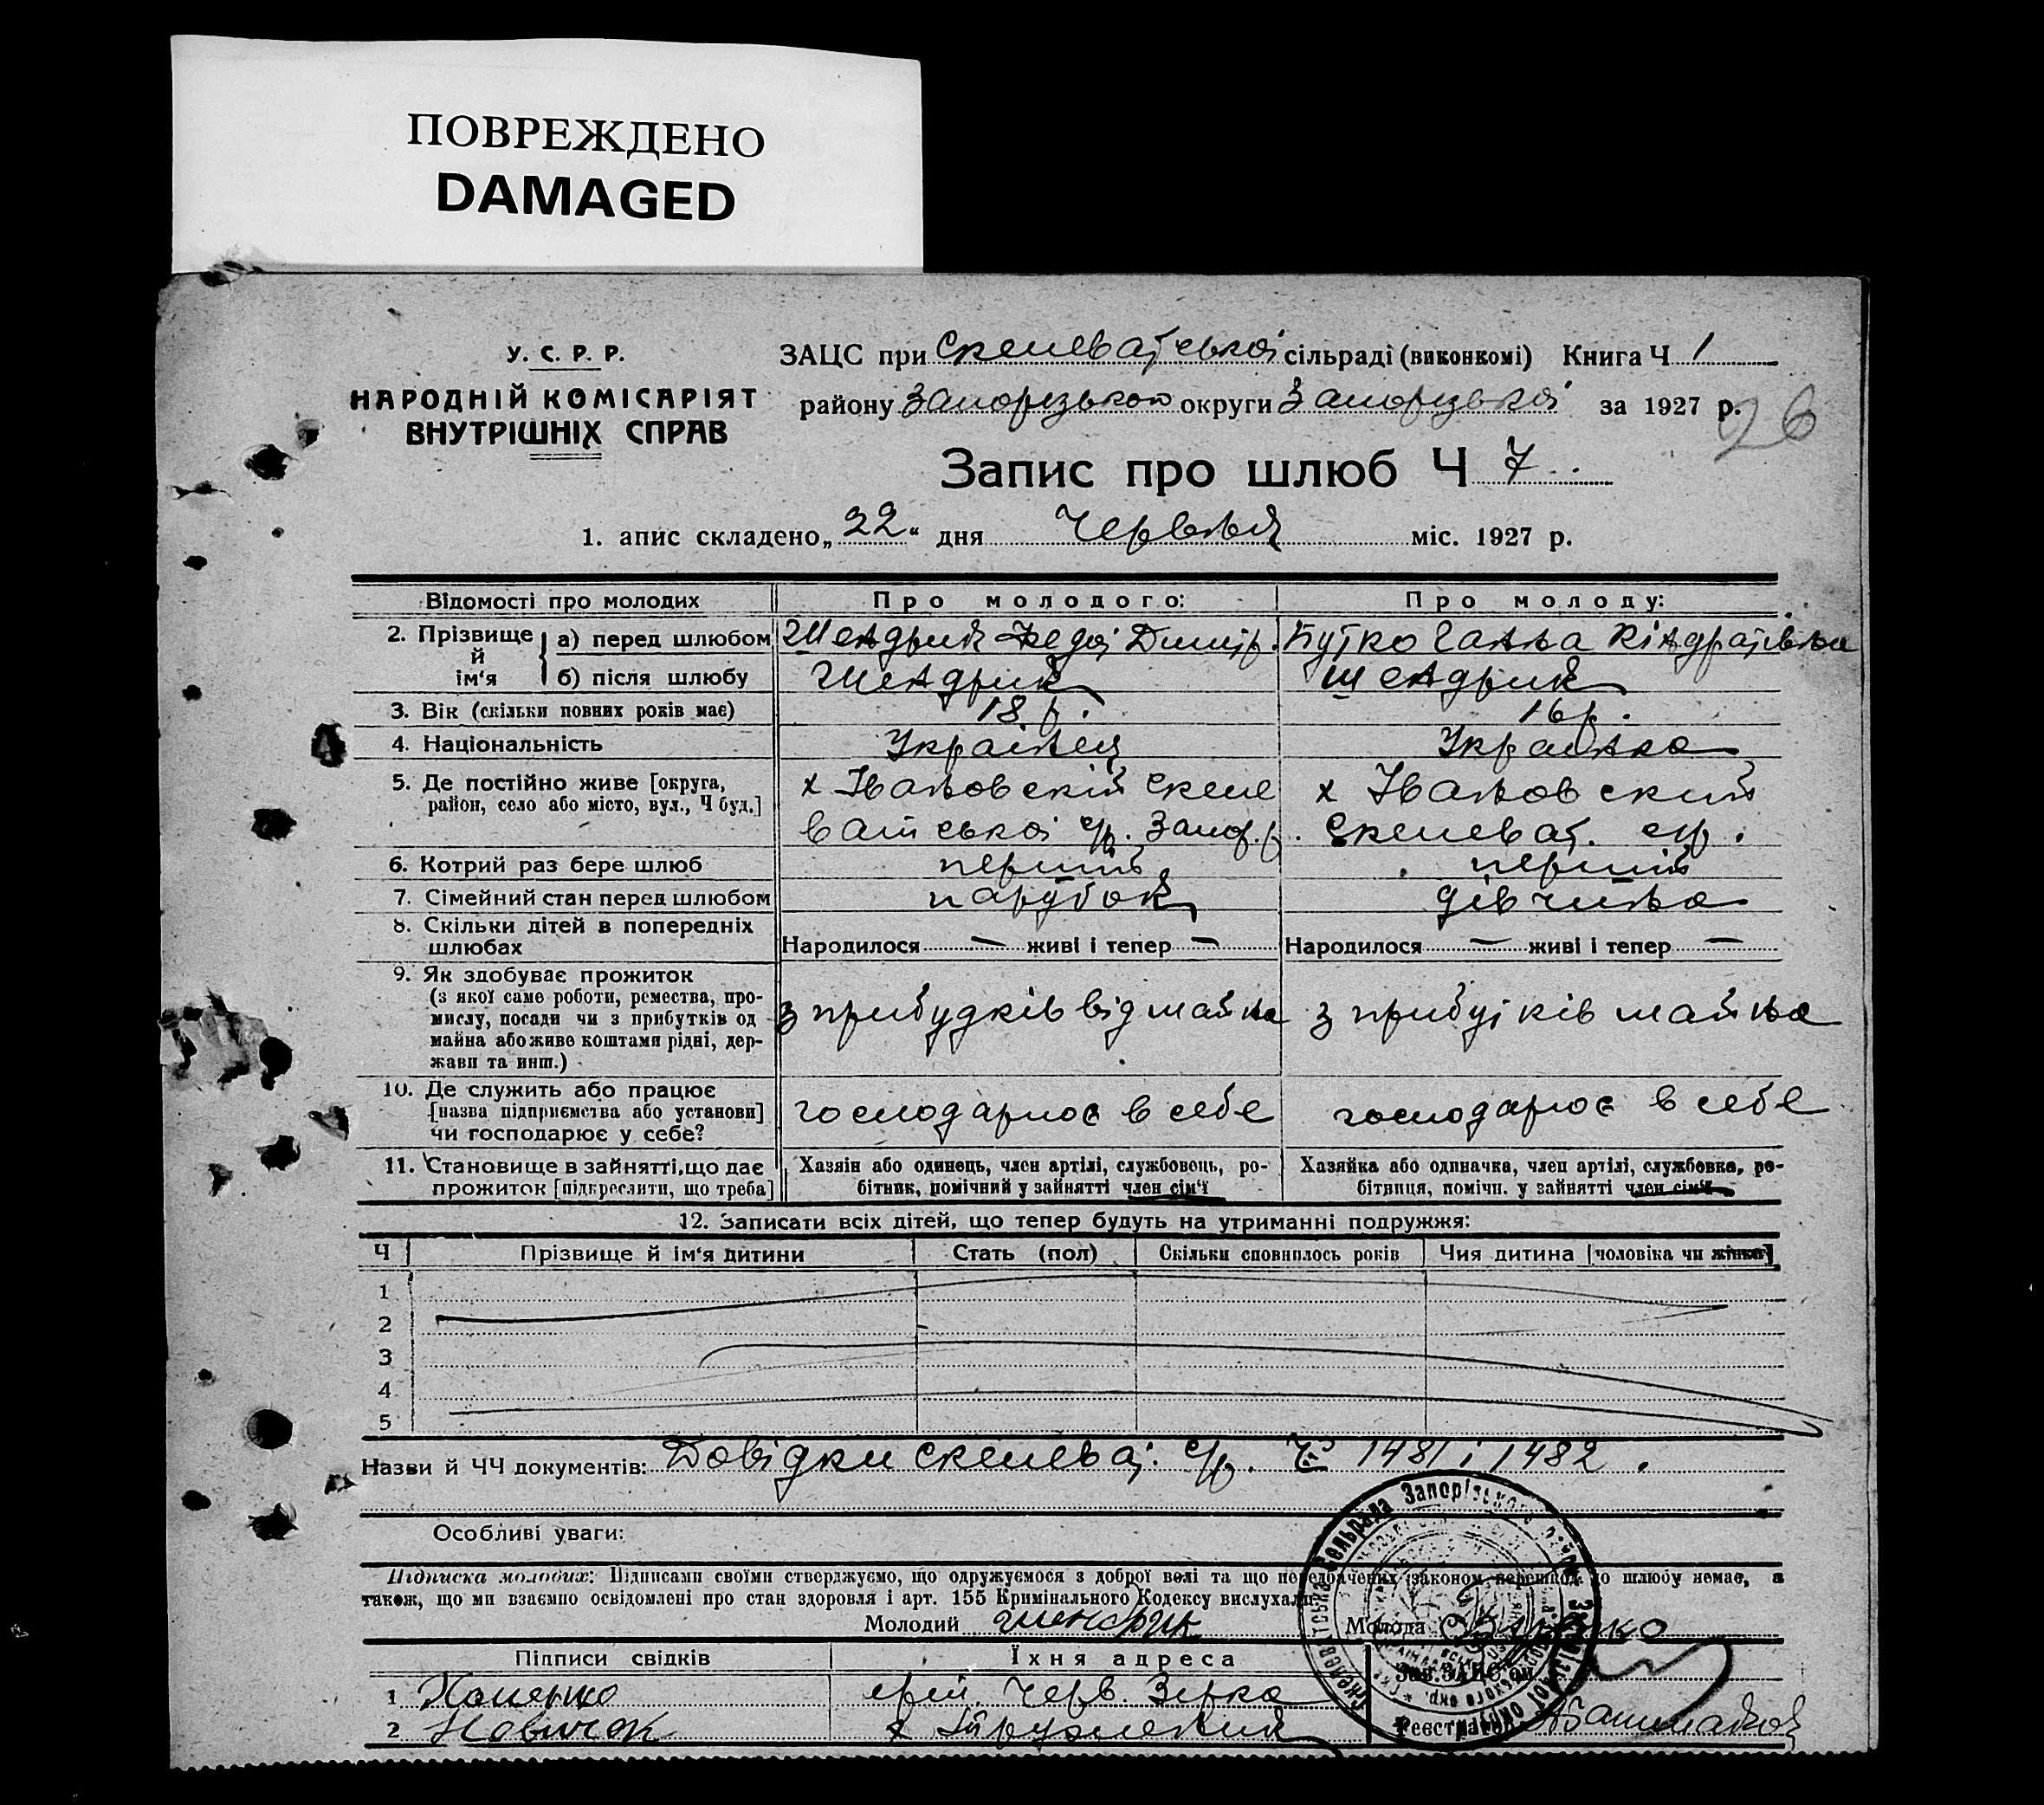 ПОВРЕЖДЕНО
DAMAGED
У. С. Р. Р.
НАРОДНІЙ КОМІСАРІЯТ
ВНУТРІШНІХ СПРАВ
ЗАЦС при Скелеватської сільраді (виконкомі) Книга Ч 1
району Запорізького округи Запорізької за 1927 р.
26
Запис про шлюб Ч 7
1. апис складено „22“ дня Червня міс. 1927 р.
Відомості про молодих Про молодого: Про молоду:
2. Прізвище й ім‘я а) перед шлюбом Шендрик Федот Дмитр. Бутко Ганна Кіндратівна
б) після шлюбу Шендрик Шендрик
3. Вік (скільки повних років має) 18 р. 16 р.
4. Національність Українец Українка
5. Де постійно живе [округа, х Івановский Скеле х Івановский
район, село або місто, вул., Ч буд.] ватської с/р. Запор. р. Скелеват. с/р.
6. Котрий раз бере шлюб перший перший
7. Сімейний стан перед шлюбом парубок дівчина
8. Скільки дітей в попередніх
шлюбах Народилося — живі і тепер — Народилося — живі і тепер —
9. Як здобуває прожиток
(з якої саме роботи, ремества, про-
мислу, посади чи з прибутків од з прибудків від майна з прибутків майна
майна або живе коштами рідні, дер-
жави та инш.)
10. Де служить або працює
[назва підприємства або установи] господарює в себе господарює в себе
чи господарює у себе?
11. Становище в зайнятті, що дає Хазяін або одинець, член артілі, службовець, ро- Хазяйка або одиначка, член артілі, службовка, ро-
прожиток [підкреслити, що треба] бітник, помічний у зайнятті член сім‘ї бітниця, помічн. у зайнятті член сім‘ї
12. Записати всіх дітей, що тепер будуть на утриманні подружжя:
Ч Прізвище й ім‘я дитини Стать (пол) Скільки сповнилось років Чия дитина [чоловіка чи жінки]
1
2
3
4
5
Назви й ЧЧ документів: Довідки Скелеват. с/р. Ч 1481 і 1482.
Особливі уваги:
Підписка молодих: Підписами своїми стверджуємо, що одружуємося з доброї волі та що передбачених законом перешкод до шлюбу немає, а
також, що ми взаємно освідомлені про стан здоровля і арт. 155 Кримінального Кодексу вислухали.
Молодий Шендрик Молода
Підписи свідків Їхня адреса Зав. ЗАЦС'ом
1
2 Новичок х
Реєстратор